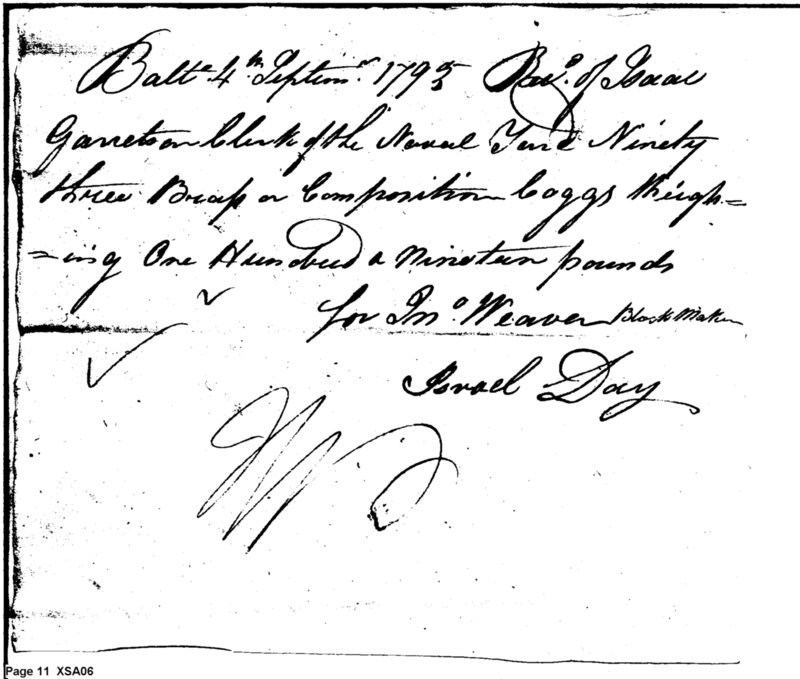 Balt.o 4th Septem.r 1795 Rec.d of Isaac
Garretson Clerk of the Naval Yard Ninety
three Brass or Composition Coggs Weigh=
=ing One Hundred & Nineteen pounds
for Jn.o Weaver Block Maker
Israel Day
Page 11 XSA06